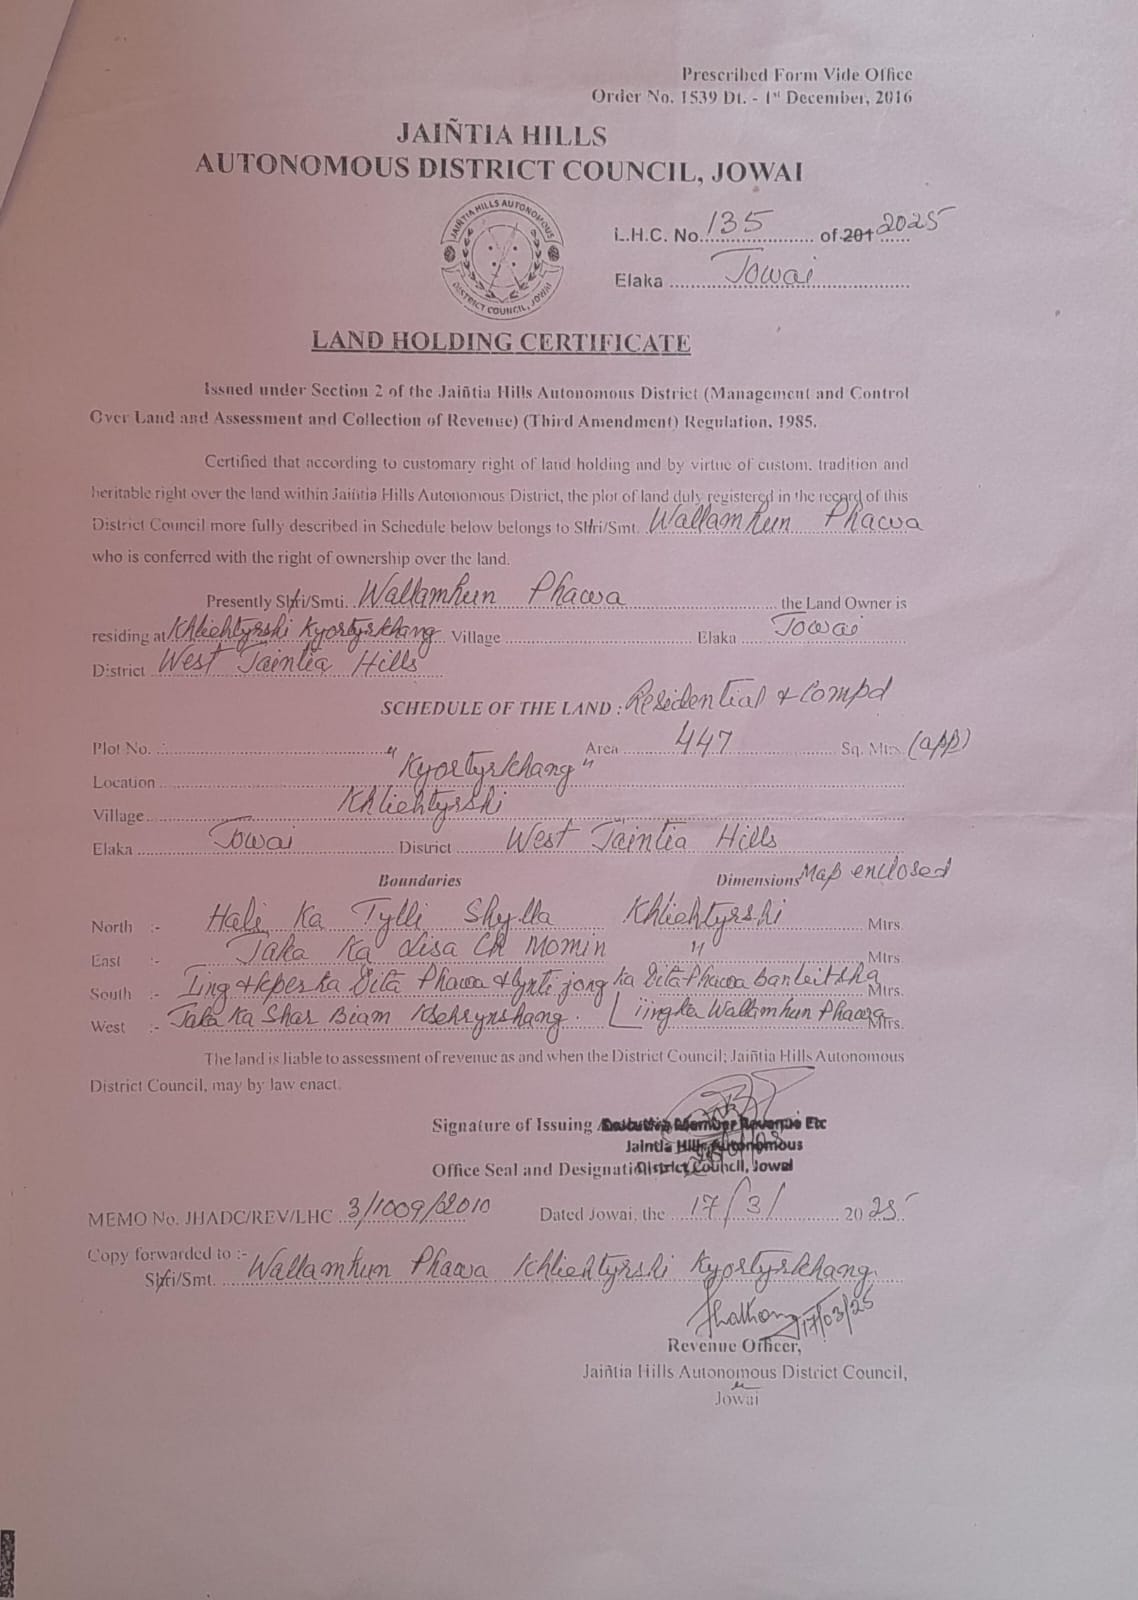 Prescribed Form Vide Office
Order No. 1539 Dt. - 1st December, 2016
JAIÑTIA HILLS
AUTONOMOUS DISTRICT COUNCIL, JOWAI
JAIÑTIA HILLS AUTONOMOUS
DISTRICT COUNCIL, JOWAI
L.H.C. No. 135 of 201 2025
Elaka Jowai
LAND HOLDING CERTIFICATE
Issued under Section 2 of the Jaiñtia Hills Autonomous District (Management and Control
Over Land and Assessment and Collection of Revenue) (Third Amendment) Regulation, 1985.
Certified that according to customary right of land holding and by virtue of custom, tradition and
heritable right over the land within Jaiñtia Hills Autonomous District, the plot of land duly registered in the record of this
District Council more fully described in Schedule below belongs to Shri/Smt. Wallamhun Phawa
who is conferred with the right of ownership over the land.
Presently Shri/Smti. Wallamhun Phawa the Land Owner is
residing at Khliehtyrshi Kyortyrkhang Village Elaka Jowai
District West Jaintia Hills
SCHEDULE OF THE LAND : Residential & Compd
Plot No. : Area 447 Sq. Mtrs. (app)
Location "Kyortyrkhang"
Village Khliehtyrshi
Elaka Jowai District West Jaintia Hills
Boundaries Dimensions Map enclosed
North :- Hali Ka Tylli Shylla Khliehtyrshi Mtrs.
East :- Jaka Ka Lisa Ch Momin " Mtrs.
South :- Iing & kper ka Dita Phawa & lynti jong ka Dita Phawa ban leit sha Mtrs.
West :- Jaka Ka Shar Biam iing ka Wallamhun Phawa Mtrs.
The land is liable to assessment of revenue as and when the District Council; Jaiñtia Hills Autonomous
District Council, may by law enact.
Signature of Issuing Executive Member Revenue Etc
Jaintia Hills Autonomous
Office Seal and Designation District Council, Jowai
MEMO No. JHADC/REV/LHC 3/1009/2010 Dated Jowai, the 17/3/ 2025
Copy forwarded to :-
Shri/Smt. Wallamhun Phawa Khliehtyrshi Kyortyrkhang.
17/03/25
Revenue Officer,
Jaiñtia Hills Autonomous District Council,
Jowai